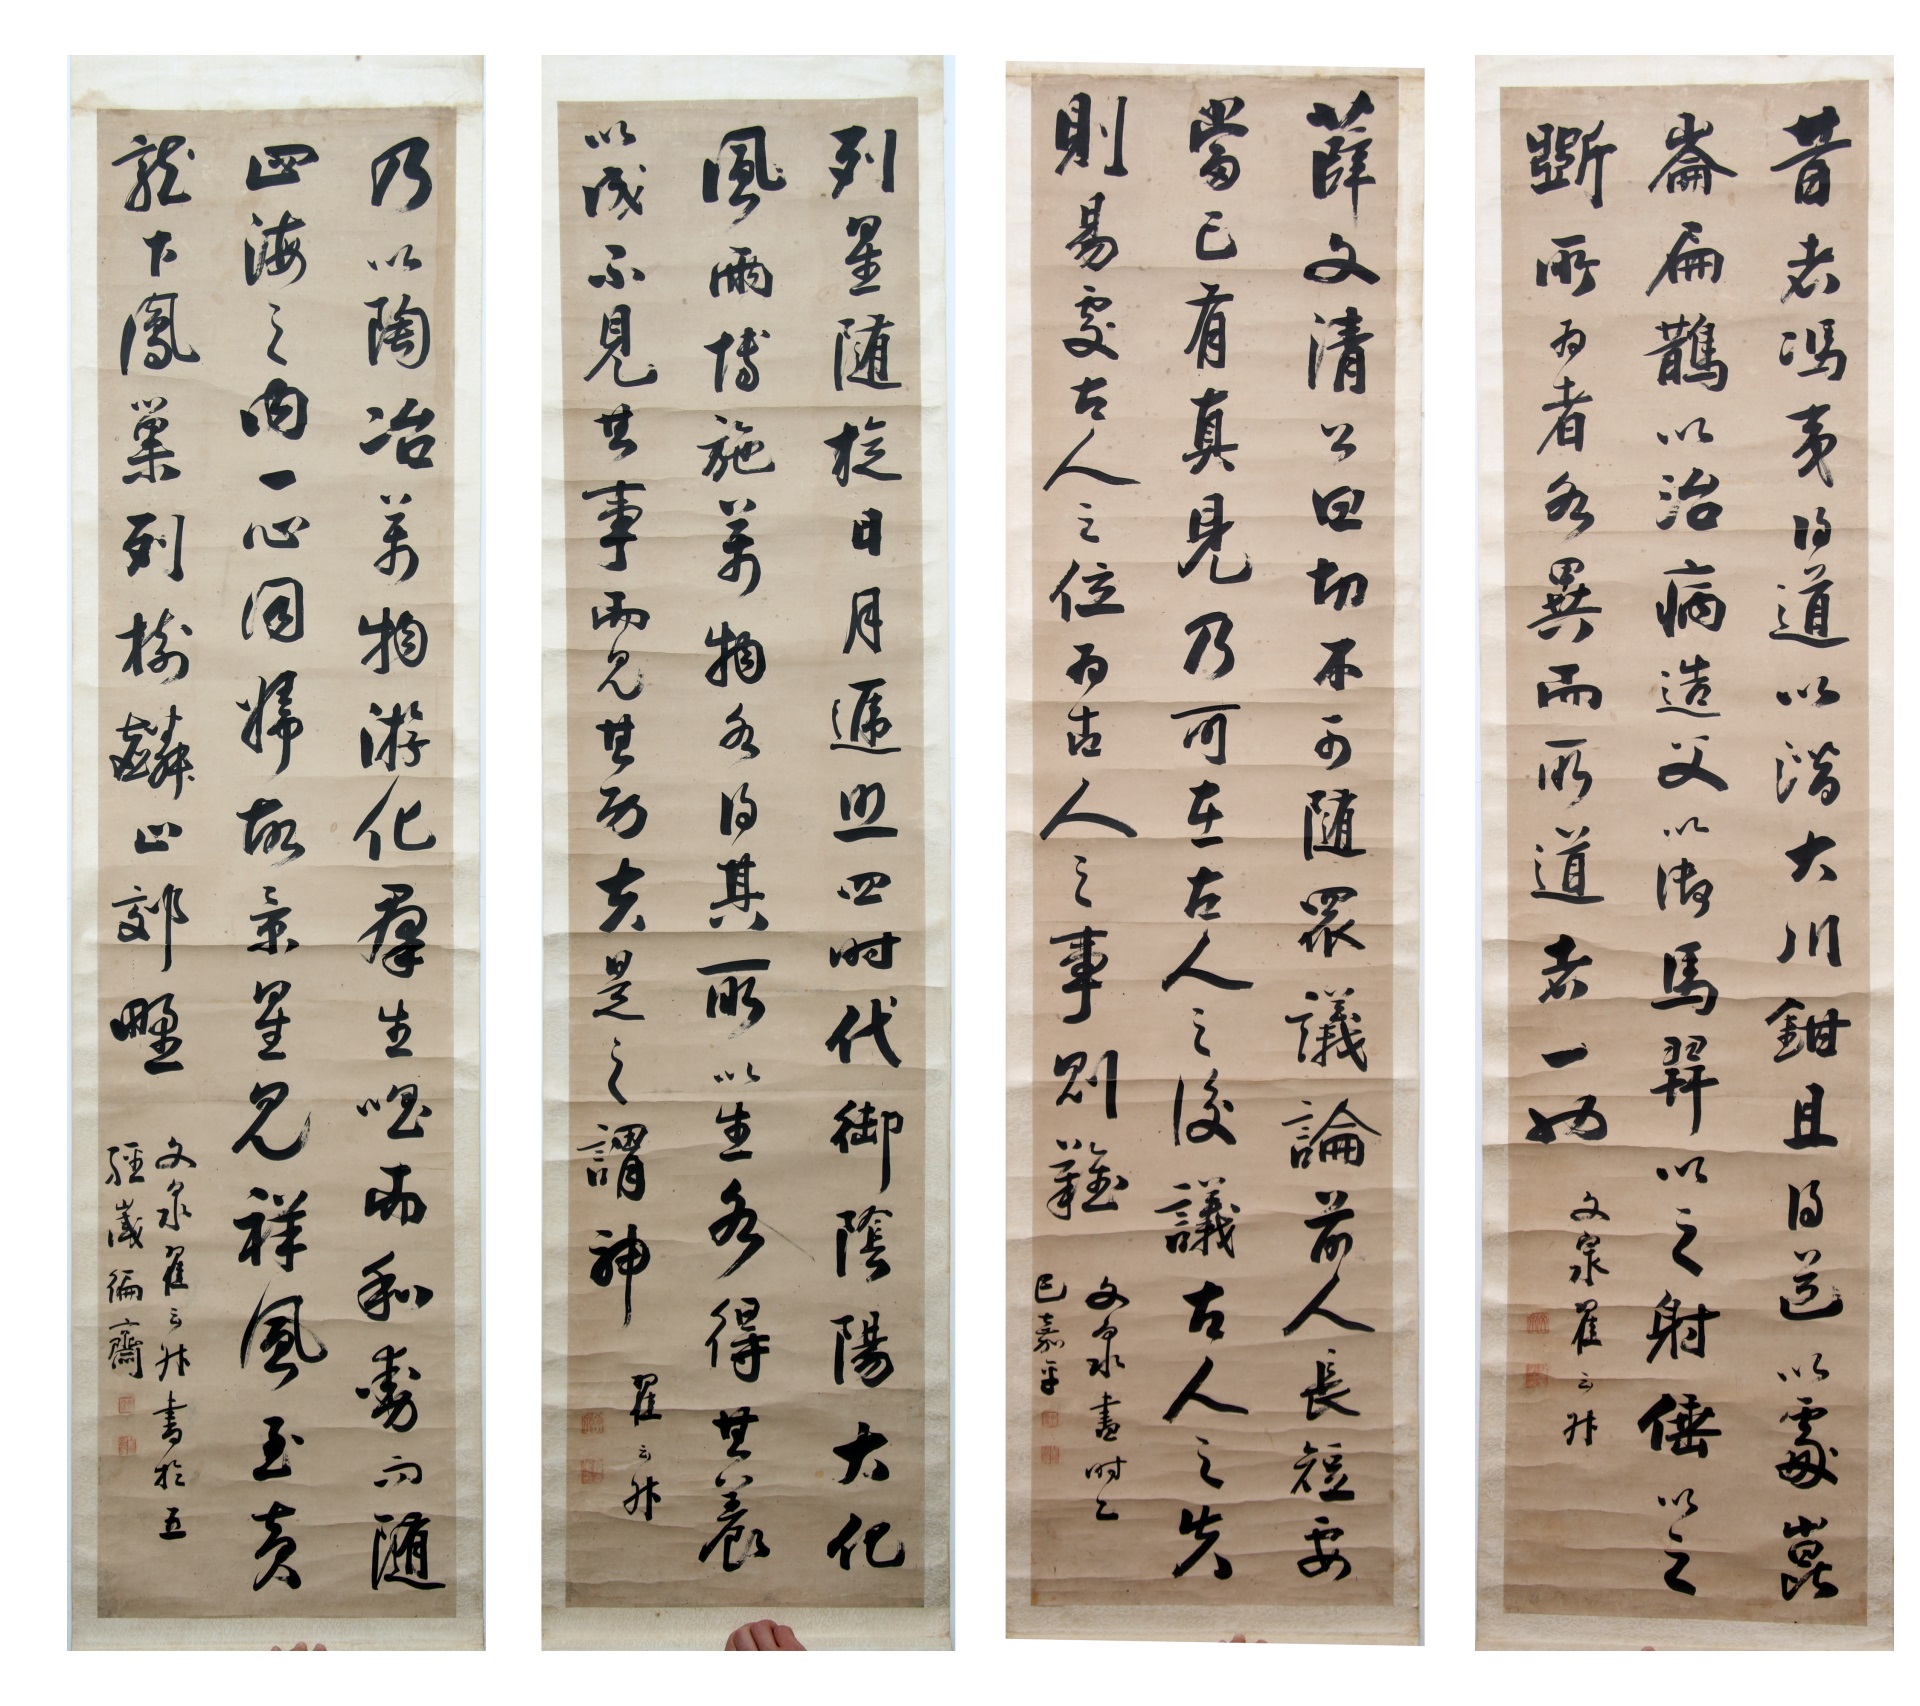 昔者馮夷得道以潛大川鉗且得道以處崑
崙扁鵲以治病造父以御馬羿以之射倕以之
斲所為者各異而所道者一也
文泉翟云升
薛文清公曰切不可隨眾議論前人長短要
當已有真見乃可在古人之後議古人之失
則易處古人之位為古人之事則難
文泉書時乙
巳嘉平
列星隨旋日月遞照四時代御陰陽大化
風雨博施萬物各得其所以生各得其養
以成不見其事而見其功夫是之謂神
翟云升
乃以陶冶萬物游化羣生唱而和動而隨
四海之內一心同歸故景星見祥風至黃
龍下鳳巢列樹麟止郊野
文泉翟云升書於五
經歲徧齋